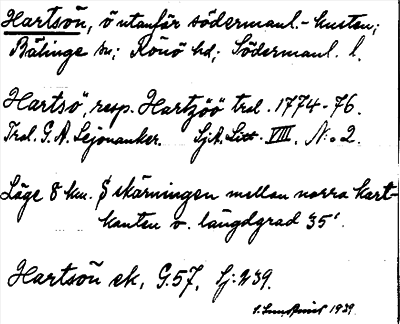 Hartsön, ö utanför södermanl.-kusten;
Bälinge sn; Rönö hd; Södermanl. l.
"Hartsö", resp. "Hartzöö" trol. 1774-76.
Trol. G.A. Lejonanker. Sj.A. Litt. VIII. N:o 2.
Läge 8 km. S skärningen mellan norra kart-
kanten o. längdgrad 35'.
Hartsön ek, G.57, Sj:239.
1939